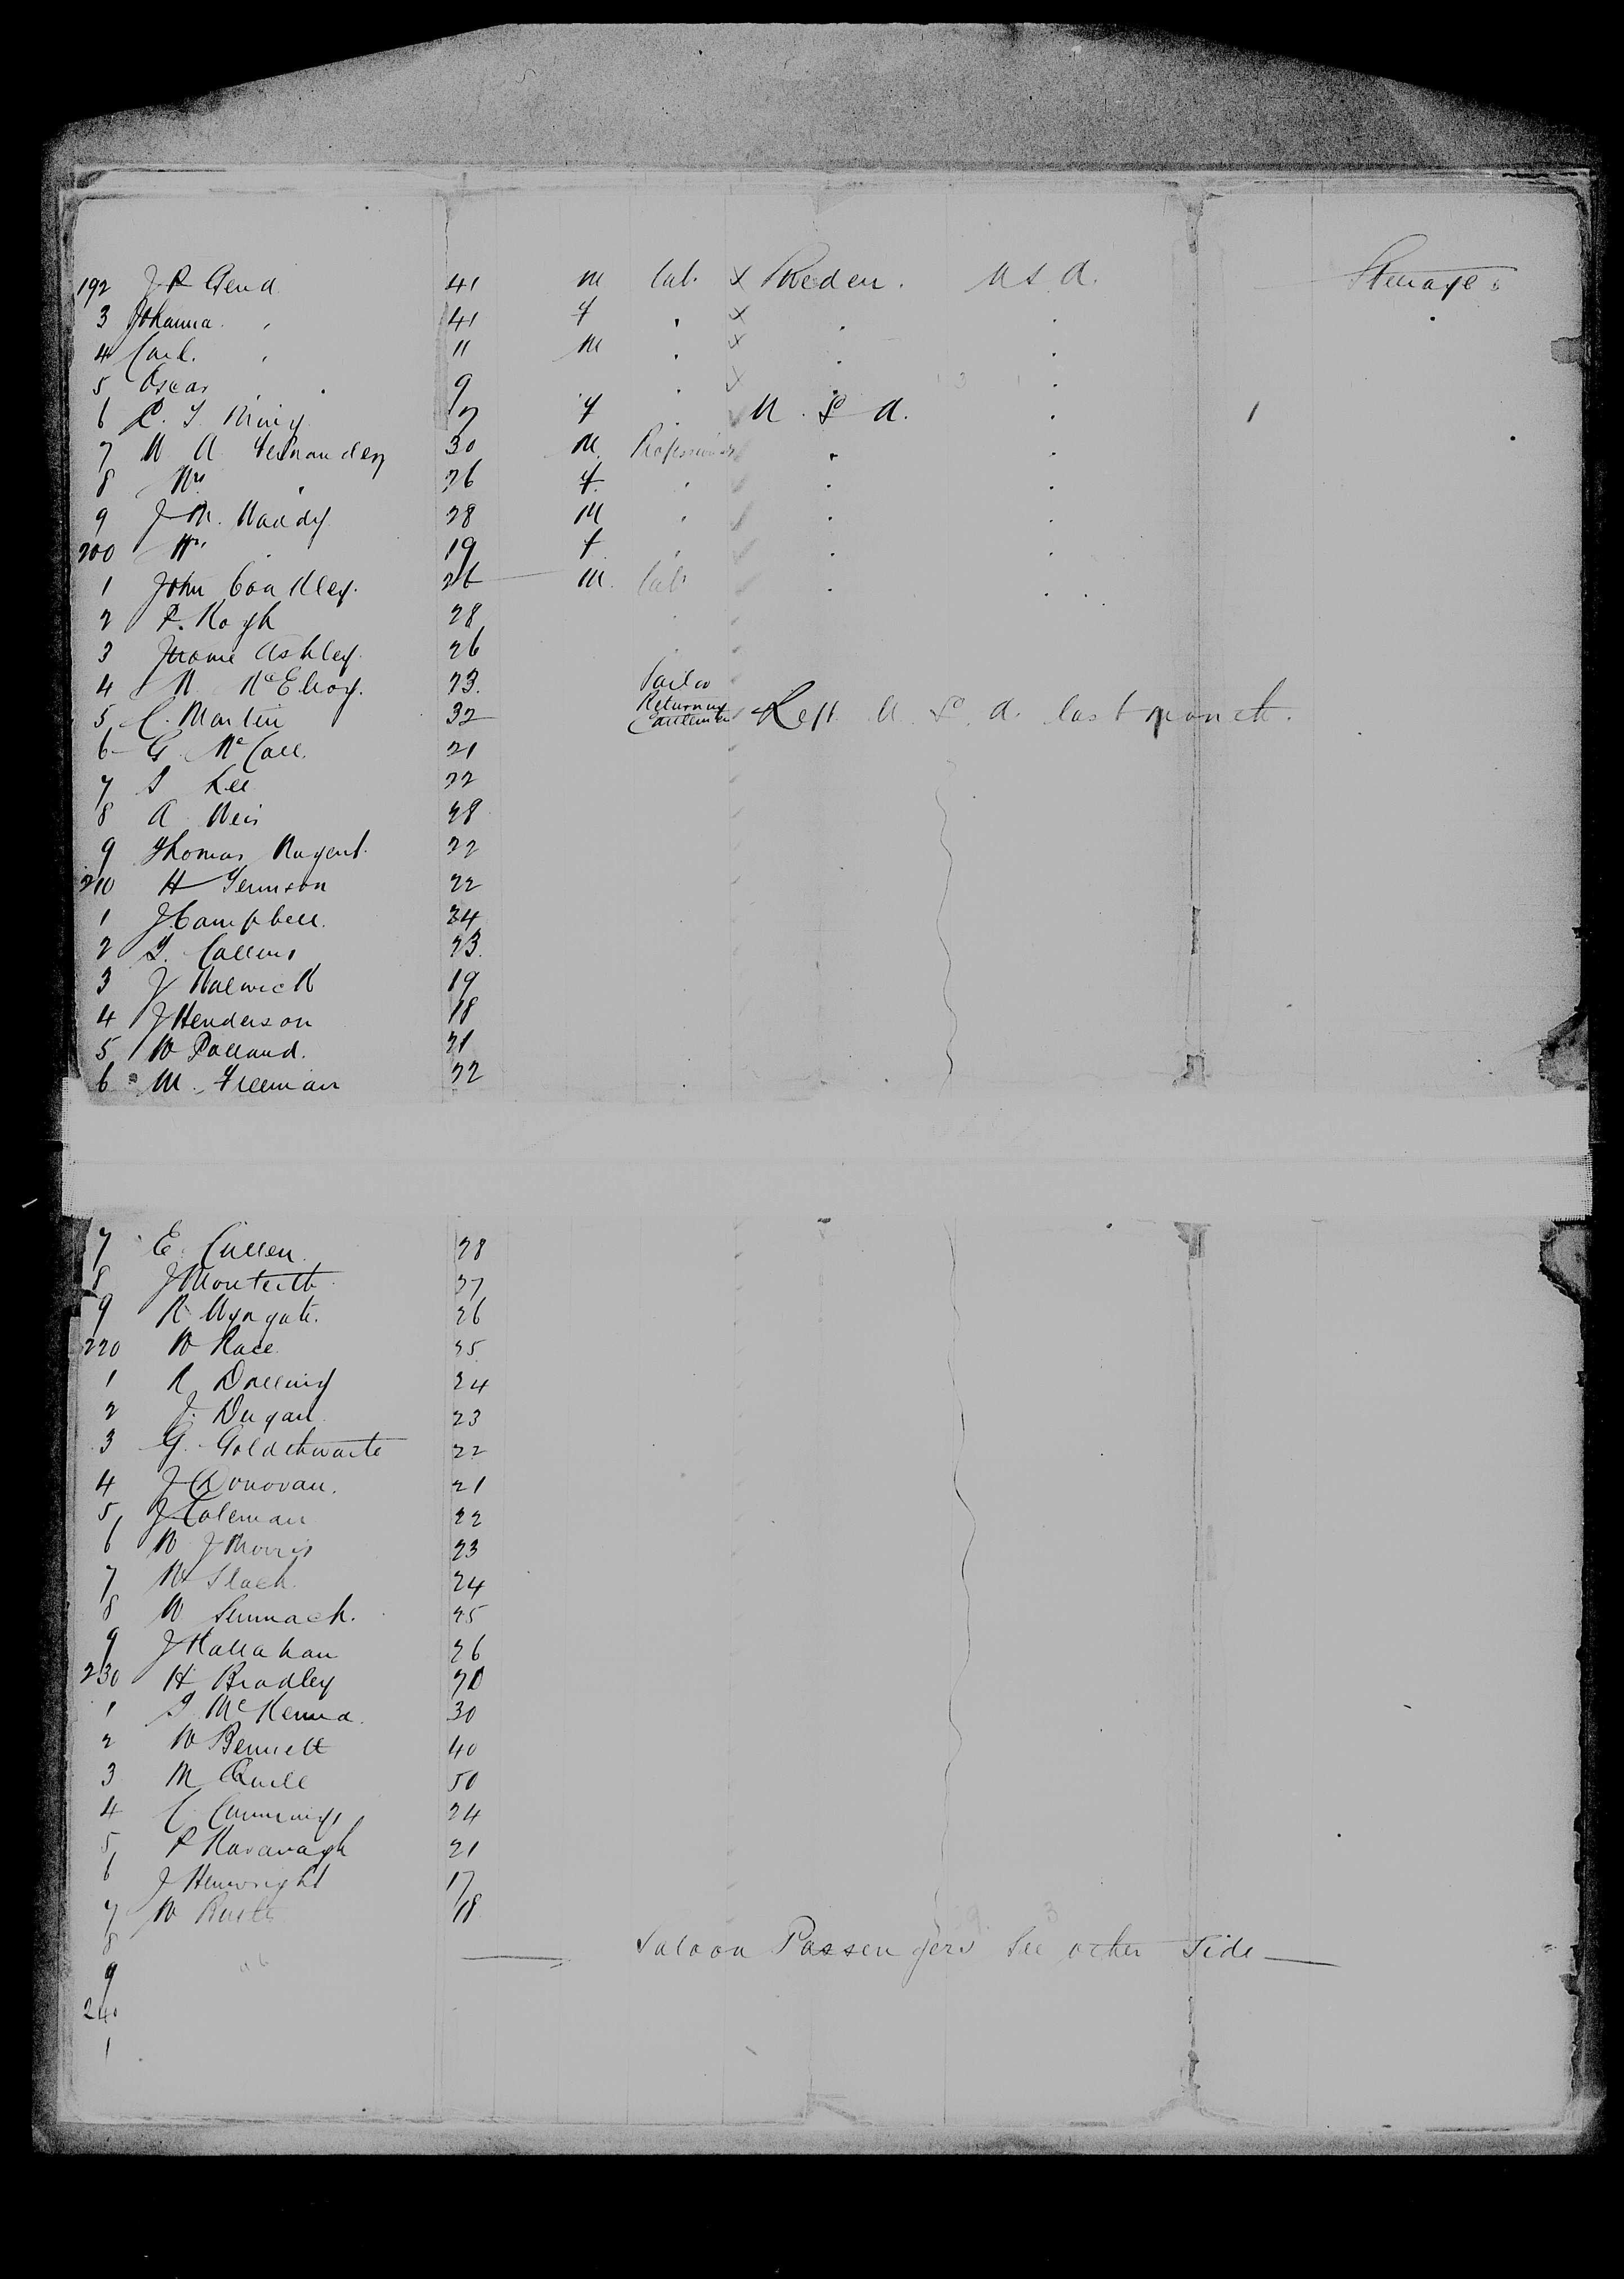 192 J P Gend 41 M Lab. x Sweden. U S A. Steerage
3 Johanna 41 f x
4 Carl 11 M x
5 Oscar 9 x
6 C. T. 7 f U. S. A. 1
7 30 M Professional
8 Mrs 26 f
9 J M. 28 M
200 Mrs 19 f
1 John 26 M. Lab
2 P. 28
3 Jerome Ashley. 26
4 McElroy. 23. Sailor
5 C. Martin 32 Returning Cattlemen Left U. S. A. last month.
6 G. McCall. 21
7 S Lee 22
8 A Weir 28
9 Thomas Nugent. 22
210 H 22
1 J Campbell. 24
2 T. Collins 23.
3 J 19
4 J Henderson 18
5 W Polland. 21
6 M. Freeman 22
7 E. Cullen 28
8 J Monteith 37
9 R Wyngate. 26
220 W Race 25
1 R Dolling 24
2 J. Dugan 23
3 G. Goldthwaite 22
4 J Donovan. 21
5 J Coleman 22
6 W J Morris 23
7 W Slack 24
8 W 25
9 J Kallahan 26
230 H Bradley 20
1 J McKenna 30
2 W Bennett 40
3 M Quill 50
4 C Cummings 24
5 P Kavanagh 21
6 J Henwright 17
7 W 18
8 Saloon Passengers See other Side
9
240
1